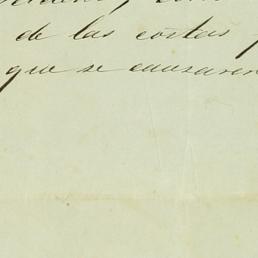 de las costas
que se causaren